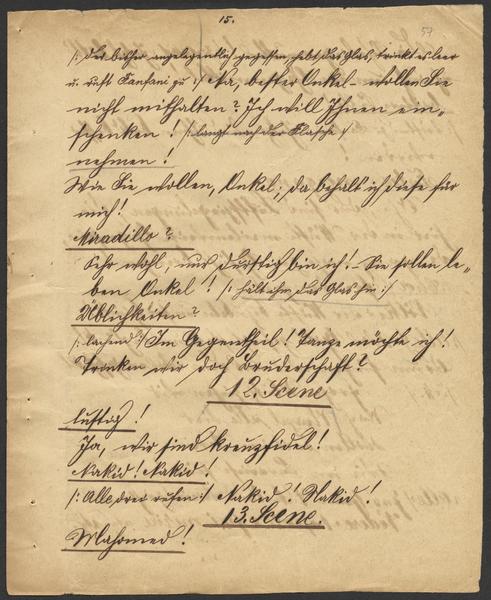 15.
57
/: der bisher angelegentlich gegessen, hebt das Glas, trinkt es leer
u. ruft Fanfani zu :/ Na, bester Onkel – wollen Sie
nicht mithalten? Ich will Ihnen ein„
schenken! /: langt nach der Flasche :/
nehmen!
Wie Sie wollen, Onkel, da behalt ich diese für
mich!
Miradillo?
Sehr wohl, nur durstig bin ich! – Sie sollen le„
ben Onkel! /: hält ihm das Glas hin :/
Üblichkeiten?
/: lachend :/ Im Gegentheil! Tanzen möchte ich!
Tranken wir doch Bruderschaft?
12. Scene
lustig!
Ja, wir sind kreuzfidel!
Nakid! Nakid!
/: Alle drei rufen :/ Nakid! Nakid!
13. Scene.
Mahomed!